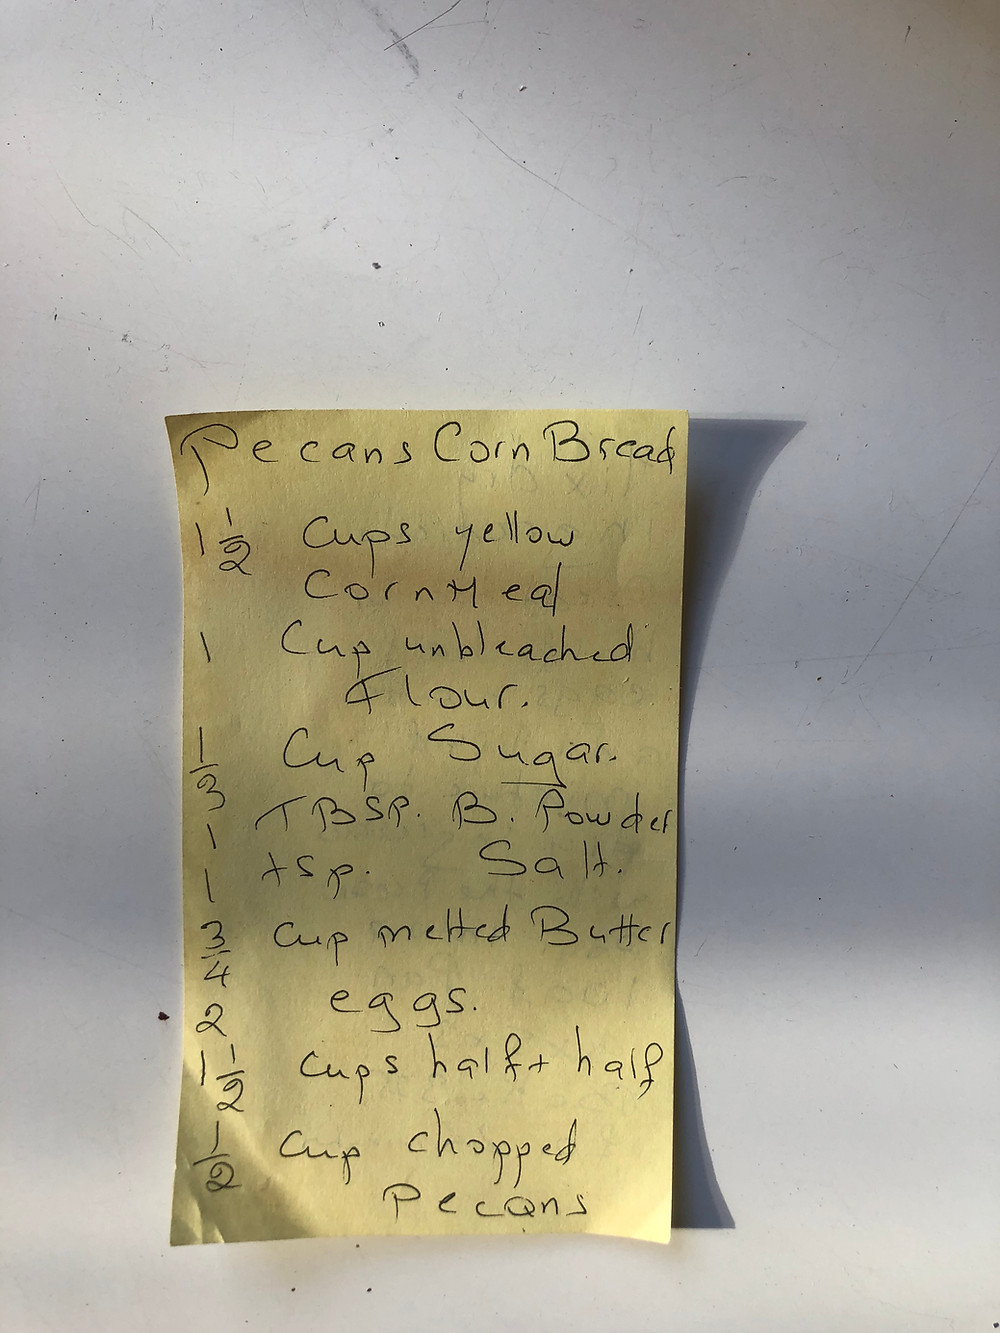 Pecans Corn Bread
1 1/2 Cups yellow
CornMeal
1 Cup unbleached
Flour.
1/3 Cup Sugar.
1 TBSP. B. Powder
1 tsp. Salt.
3/4 Cup melted Butter
2 eggs.
1 1/2 Cups half + half
1/2 Cup chopped
Pecans